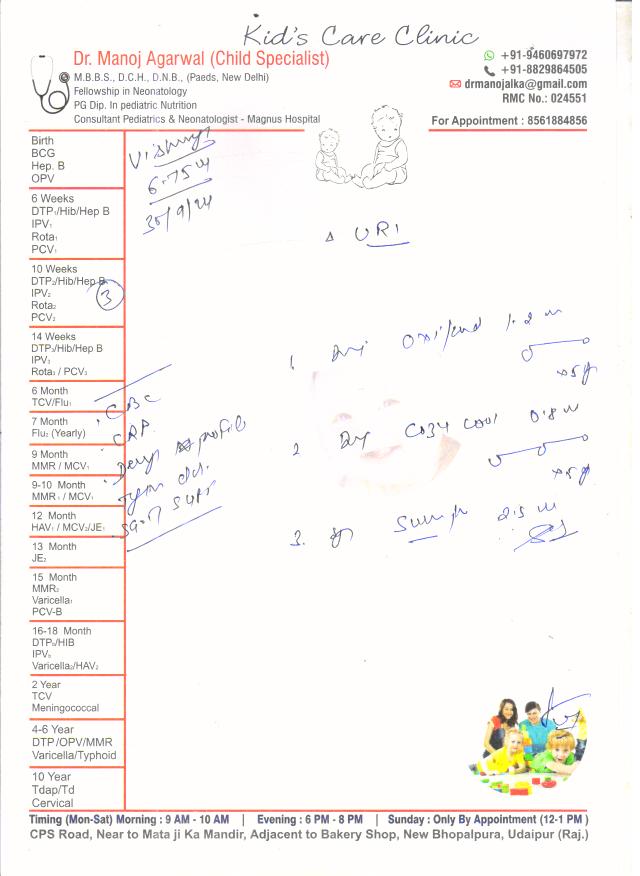 Kid's Care Clinic
Dr. Manoj Agarwal (Child Specialist)
M.B.B.S., D.C.H., D.N.B., (Paeds, New Delhi)
Fellowship in Neonatology
PG Dip. In pediatric Nutrition
Consultant Pediatrics & Neonatologist - Magnus Hospital
+91-9460697972
+91-8829864505
drmanojalka@gmail.com
RMC No.: 024551
For Appointment : 8561884856
Birth
BCG
Hep. B
OPV
30/9/24
6 Weeks
DTP₁/Hib/Hep B
IPV₁
Rota₁
PCV₁
Δ URI
10 Weeks
DTP₂/Hib/Hep B
IPV₂
Rota₂
PCV₂
3
14 Weeks
DTP₃/Hib/Hep B
IPV₃
Rota₃ / PCV₃
1.
6 Month
TCV/Flu₁
CBC
7 Month
Flu₂ (Yearly)
CRP
9 Month
MMR / MCV₁
profile
2
9-10 Month
MMR₁ / MCV₁
12 Month
HAV₁ / MCV₂/JE₁
3.
2.5
13 Month
JE₂
15 Month
MMR₂
Varicella₁
PCV-B
16-18 Month
DTP₄/HIB
IPV₄
Varicella₂/HAV₂
2 Year
TCV
Meningococcal
4-6 Year
DTP/OPV/MMR
Varicella/Typhoid
10 Year
Tdap/Td
Cervical
Timing (Mon-Sat) Morning : 9 AM - 10 AM | Evening : 6 PM - 8 PM | Sunday : Only By Appointment (12-1 PM )
CPS Road, Near to Mata ji Ka Mandir, Adjacent to Bakery Shop, New Bhopalpura, Udaipur (Raj.)